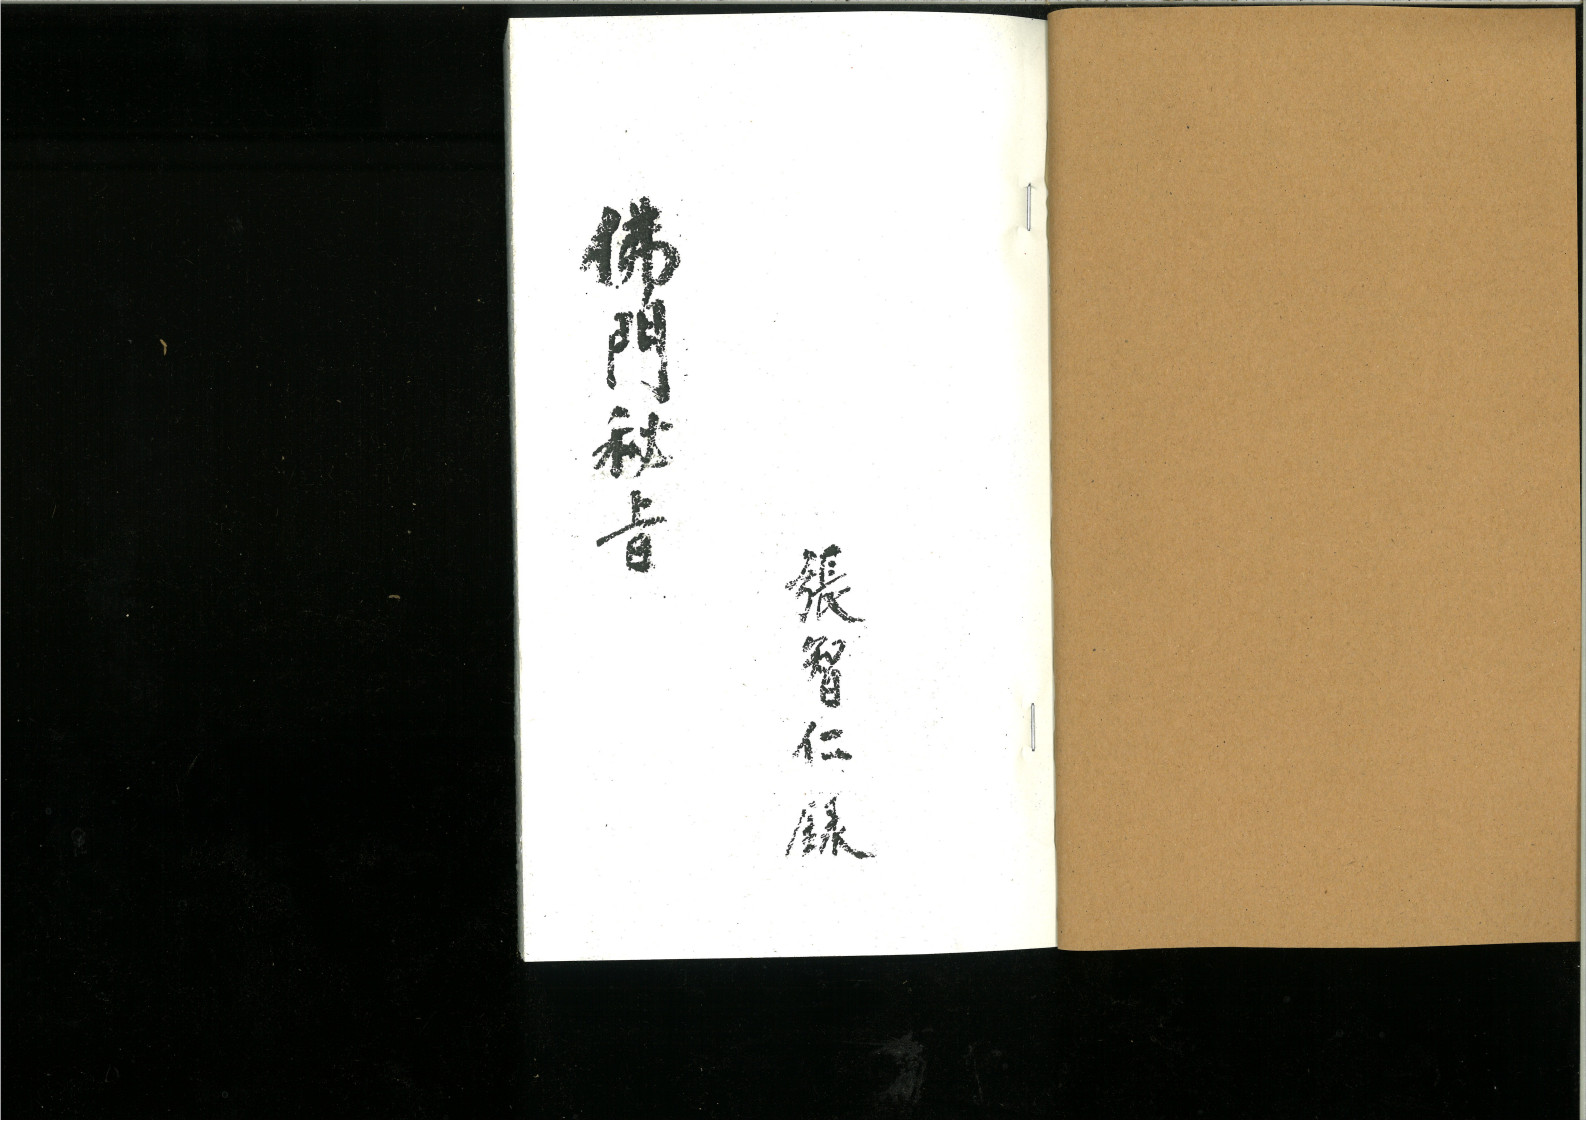 張智仁錄
佛門秘旨